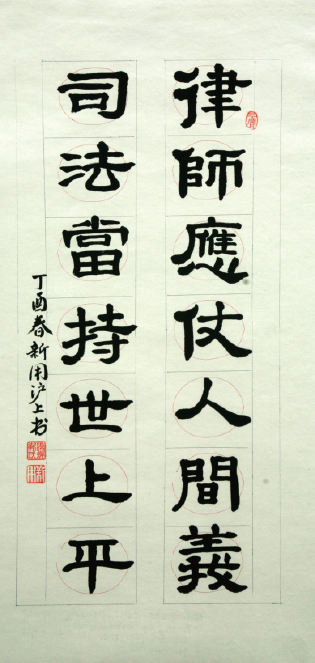 律師應仗人間義
司法當持世上平
丁酉春新用沪上书